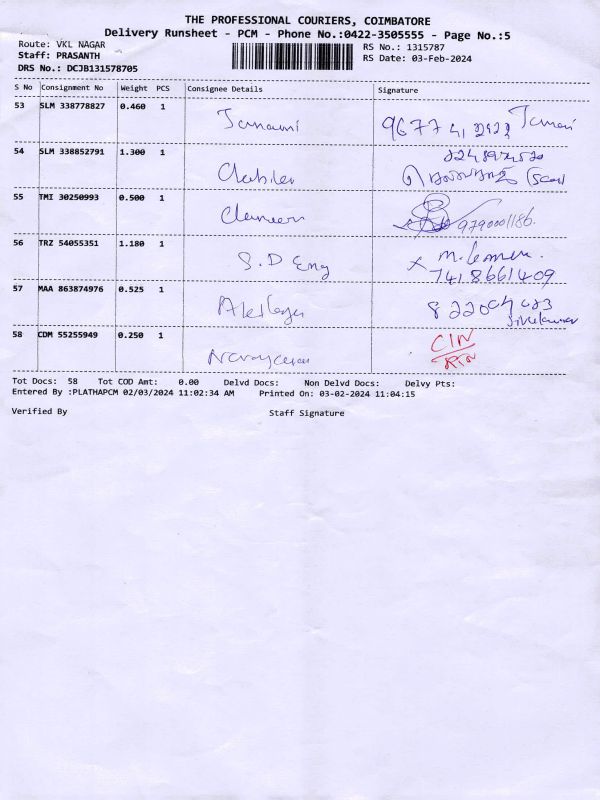 THE PROFESSIONAL COURIERS, COIMBATORE
Delivery Runsheet - PCM - Phone No.:0422-3505555 - Page No.:5
Route: VKL NAGAR
RS No.: 1315787
Staff: PRASANTH
RS Date: 03-Feb-2024
DRS No.: DCJB131578705
S No Consignment No Weight PCS Consignee Details Signature
53 SLM 338778827 0.460 1
54 SLM 338852791 1.300 1
55 TMI 30250993 0.500 1 9790001186.
56 TRZ 54055351 1.180 1 S.D Eng
7418661409
57 MAA 863874976 0.525 1
58 CDM 55255949 0.250 1 CIN
Tot Docs: 58 Tot COD Amt: 0.00 Delvd Docs: Non Delvd Docs: Delvy Pts:
Entered By :PLATHAPCM 02/03/2024 11:02:34 AM Printed On: 03-02-2024 11:04:15
Verified By Staff Signature